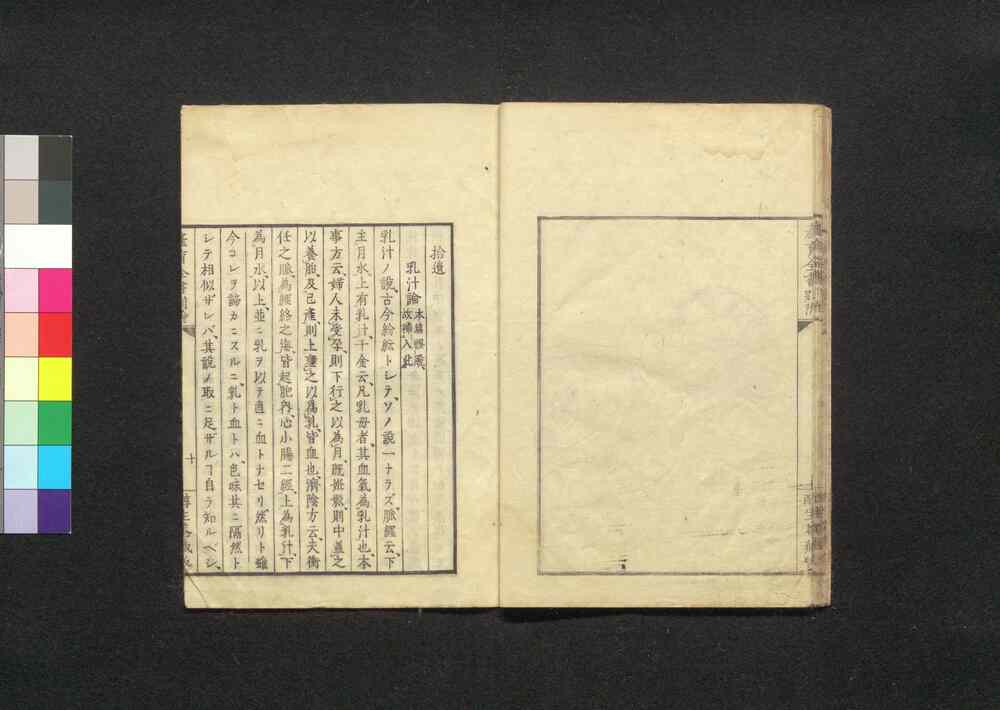 拾遺
乳汁論
本篇脱漏
故挿入此
乳汁ノ説、古今紛紜トシテ、ソノ説一ナラズ、脈經云、下
主月水、上有乳汁、千金云、凡乳母者、其血氣為乳汁也、本
事方云、婦人未受孕、則下行之以為月、既姙娠、則中畜之
以養胎、及已產、則上壅之以為乳、皆血也、濟陰方云、夫衝
任之脈為經絡之海、皆起胞內、心小腸二經、上為乳汁、下
為月水、以上並ニ乳ヲ以テ直ニ血トナセリ、然リト雖
今コレヲ諦カニスルニ、乳ト血トハ、色味其ニ隔然ト
シテ相似ザレバ、其説ノ取ニ足ザルヿ自ラ知ルベシ、
十